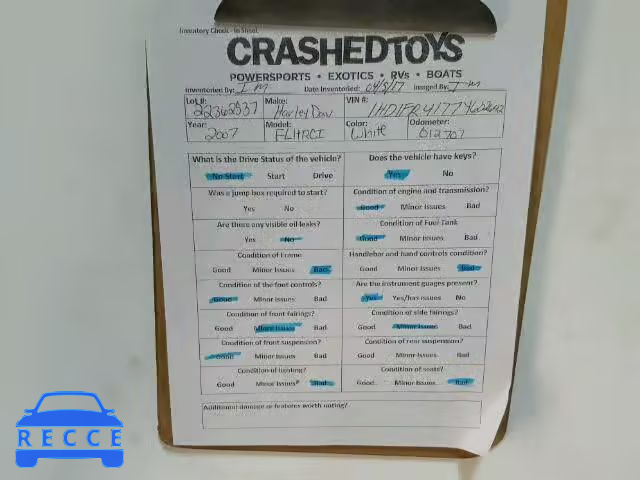 Inventory Check - In Sheet
CRASHEDTOYS
POWERSPORTS • EXOTICS • RVs • BOATS
Inventoried By: I M Date Inventoried: 04/5/17 Imaged By: I M
Lot #: 22362537 Make: Harley Dav VIN #: 1HD1FR4177Y
Year: 2007 Model: FLHRCI Color: White Odometer: 012707
What is the Drive Status of the vehicle? Does the vehicle have keys?
No Start Start Drive Yes No
Was a jump box required to start? Condition of engine and transmission?
Yes No Good Minor Issues Bad
Are there any visible oil leaks? Condition of Fuel Tank
Yes No Good Minor Issues Bad
Condition of Frame Handlebar and hand controls condition?
Good Minor Issues Bad Good Minor Issues Bad
Condition of the foot controls? Are the instrument guages present?
Good Minor Issues Bad Yes Yes/has issues No
Condition of front fairings? Condition of side fairings?
Good Minor Issues Bad Good Minor Issues Bad
Condition of front suspension? Condition of rear suspension?
Good Minor Issues Bad Good Minor Issues Bad
Condition of lighting? Condition of seats?
Good Minor Issues Bad Good Minor Issues Bad
Additional damage or features worth noting?
RECCE